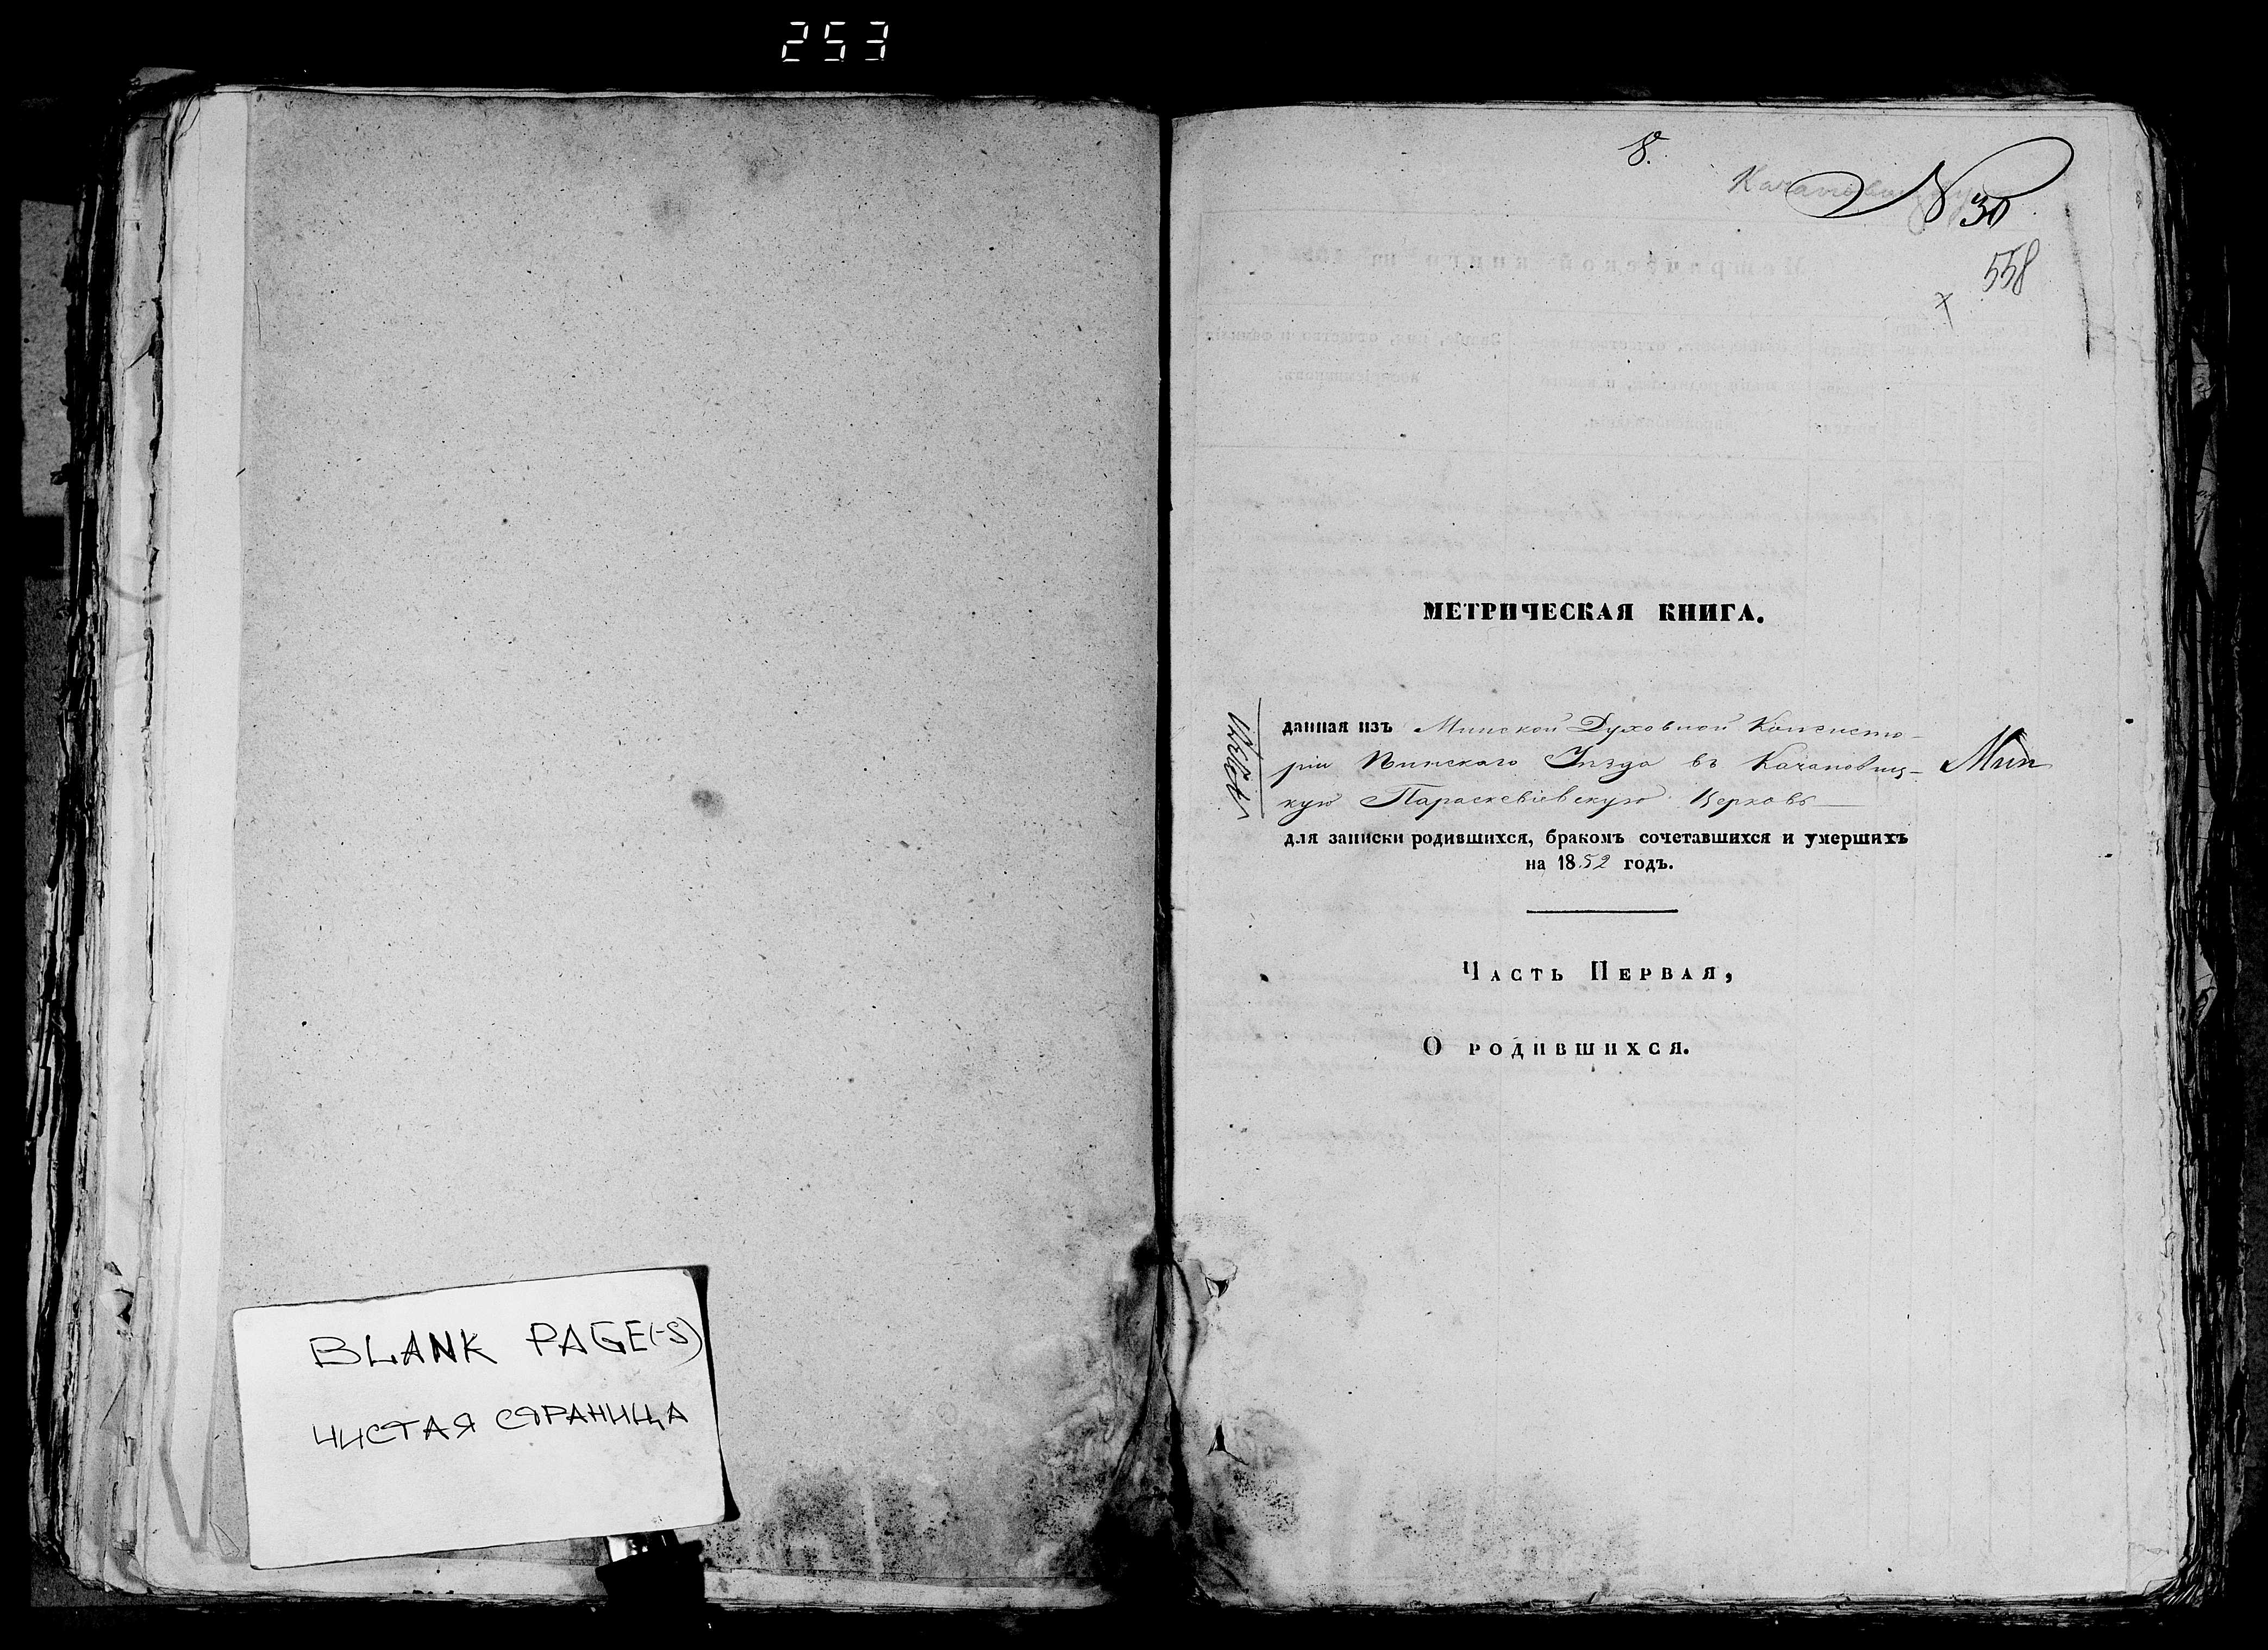 253
8.
N 30
558
МЕТРИЧЕСКАЯ КНИГА.
данная изъ Минской Духовной Консисто-
ріи Пинскаго Уѣзда въ Качановиц-
кую Параскевіевскую Церковь
Мин
для записки родившихся, бракомъ сочетавшихся и умершихъ
на 1852 годъ.
Часть Первая,
О родившихся.
BLANK PAGE(-S)
ЧИСТАЯ СТРАНИЦА